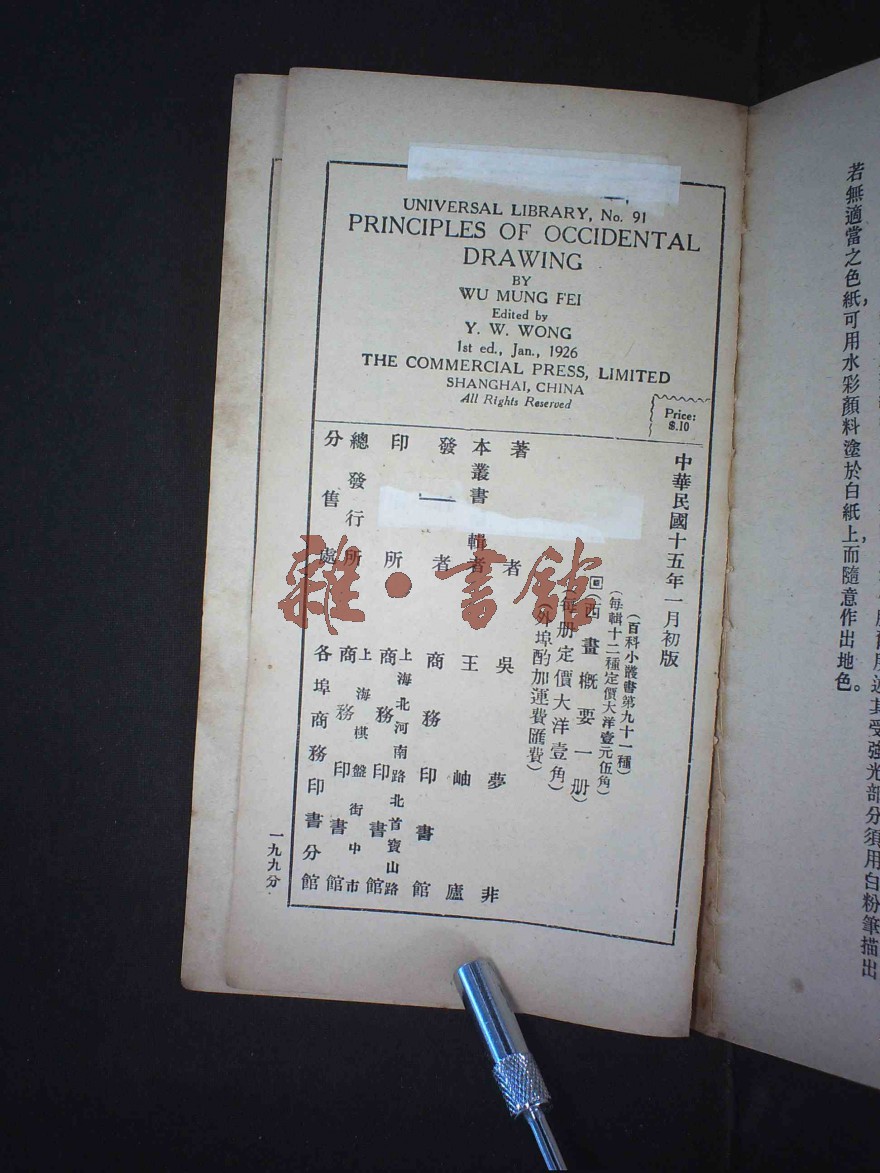 UNIVERSAL LIBRARY, No. 91
PRINCIPLES OF OCCIDENTAL
DRAWING
BY
WU MUNG FEI
Edited by
Y. W. WONG
1st ed., Jan., 1926
THE COMMERCIAL PRESS, LIMITED
SHANGHAI, CHINA
All Rights Reserved
Price:
$.10
中華民國十五年一月初版
(百科小叢書第九十一種)
(每輯十二種定價大洋壹元伍角)
(西畫概要一册)
(每册定價大洋壹角)
(外埠酌加運費匯費)
著者 吳夢非
本叢書輯者 王岫廬
發者 商務印書館
印所 上海北河南路北首寶山路
商務印書館
總發行所 上海棋盤街中市
商務印書館
分售處 各埠商務印書分館
一九九分
雜·書館
其受強光部分須用白粉筆描出
若無適當之色紙,可用水彩顏料塗於白紙上,而隨意作出地色。